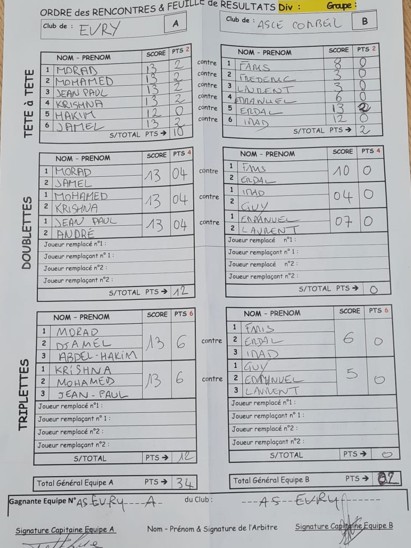 ORDRE des RENCONTRES & FEUILLE de RESULTATS Div : Groupe :
Club de : EVRY A Club de : ASCE CORBEIL B
TETE à TETE
NOM - PRENOM SCORE PTS 2 NOM - PRENOM SCORE PTS 2
1 MORAD 13 2 contre 1 FARIS 8 0
2 MOHAMED 13 2 contre 2 FREDERIC 3 0
3 JEAN PAUL 13 2 contre 3 LAURENT 3 0
4 KRISHNA 13 2 contre 4 EMMANUEL 6 0
5 HAKIM 12 0 contre 5 ERDAL 13 2
6 JAMEL 13 2 contre 6 IRAD 12 0
S/TOTAL PTS → 10 S/TOTAL PTS → 2
DOUBLETTES
NOM - PRENOM SCORE PTS 4 NOM - PRENOM SCORE PTS 4
1 MORAD 13 04 contre 1 FARIS 10 0
2 JAMEL 2 ERDAL
1 MOHAMED 13 04 contre 1 IRAD 04 0
2 KRISHNA 2 GUY
1 JEAN PAUL 13 04 contre 1 EMMANUEL 07 0
2 ANDRÉ 2 LAURENT
Joueur remplacé n°1 : Joueur remplacé n°1 :
Joueur remplaçant n°1 : Joueur remplaçant n°1 :
Joueur remplacé n°2 : Joueur remplacé n°2 :
Joueur remplaçant n°2 : Joueur remplaçant n°2 :
S/TOTAL PTS → 12 S/TOTAL PTS → 0
TRIPLETTES
NOM - PRENOM SCORE PTS 6 NOM - PRENOM SCORE PTS 6
1 MORAD 1 FARIS
2 DJAMEL 13 6 contre 2 ERDAL 6 0
3 ABDEL-HAKIM 3 IRAD
1 KRISHNA 1 GUY
2 MOHAMED 13 6 contre 2 EMMANUEL 5 0
3 JEAN-PAUL 3 LAURENT
Joueur remplacé n°1 : Joueur remplacé n°1 :
Joueur remplaçant n°1 : Joueur remplaçant n°1 :
Joueur remplacé n°2 : Joueur remplacé n°2 :
Joueur remplaçant n°2 : Joueur remplaçant n°2 :
S/TOTAL PTS → 12 S/TOTAL PTS → 0
Total Général Equipe A PTS → 34 Total Général Equipe B PTS → 2
Gagnante Equipe N° AS EVRY A du Club : AS EVRY
Signature Capitaine Equipe A Nom - Prénom & Signature de l'Arbitre Signature Capitaine Equipe B